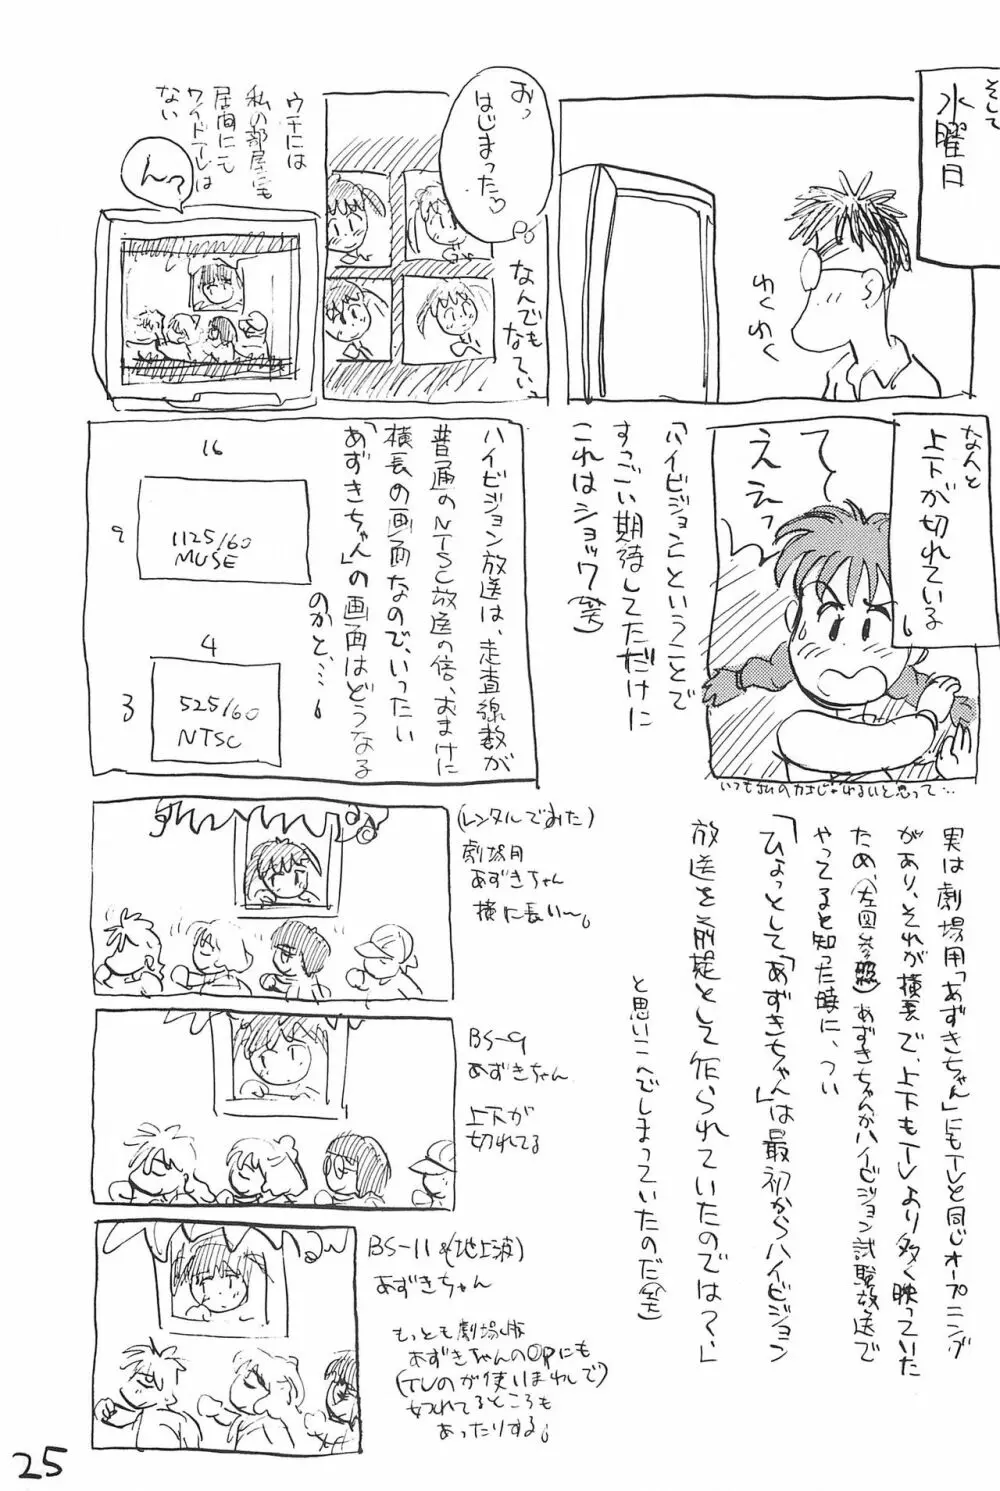 そして
水曜日
わくわく
おっ
はじまった♡
なんでも
なてぃっ
ウチには
私の部屋にも
居間にも
ワイドテレビは
ない
んっ?
なんと
上下が切れている
てっ
ええっ
「ハイビジョン」ということで
すっごい期待してただけに
これはショック(笑)
ハイビジョン放送は、走査線数が
普通のNTSC放送の倍、おまけに
横長の画面なので、いったい
「あずきちゃん」の画面はどうなる
のかと…。
16
9
1125/60
MUSE
4
3
525/60
NTSC
実は劇場用「あずきちゃん」にもTVと同じオープニング
があり、それが横長で、上下もTVより多く映っていた
ため、(左図参照)あずきちゃんがハイビジョン試験放送で
やってると知った時に、つい
「ひょっとして、「あずきちゃん」は最初からハイビジョン
放送を前提として作られていたのでは?」
と思いこんでしまっていたのだ(笑)
(レンタルでみた)
劇場用
あずきちゃん
横に長い〜。
BS-9
あずきちゃん
上下が
切れてる
BS-11&(地上波)
あずきちゃん
もっとも劇場版
あずきちゃんのOPにも
(TVのが使いまわしで)
切れてるところも
あったりする。
25